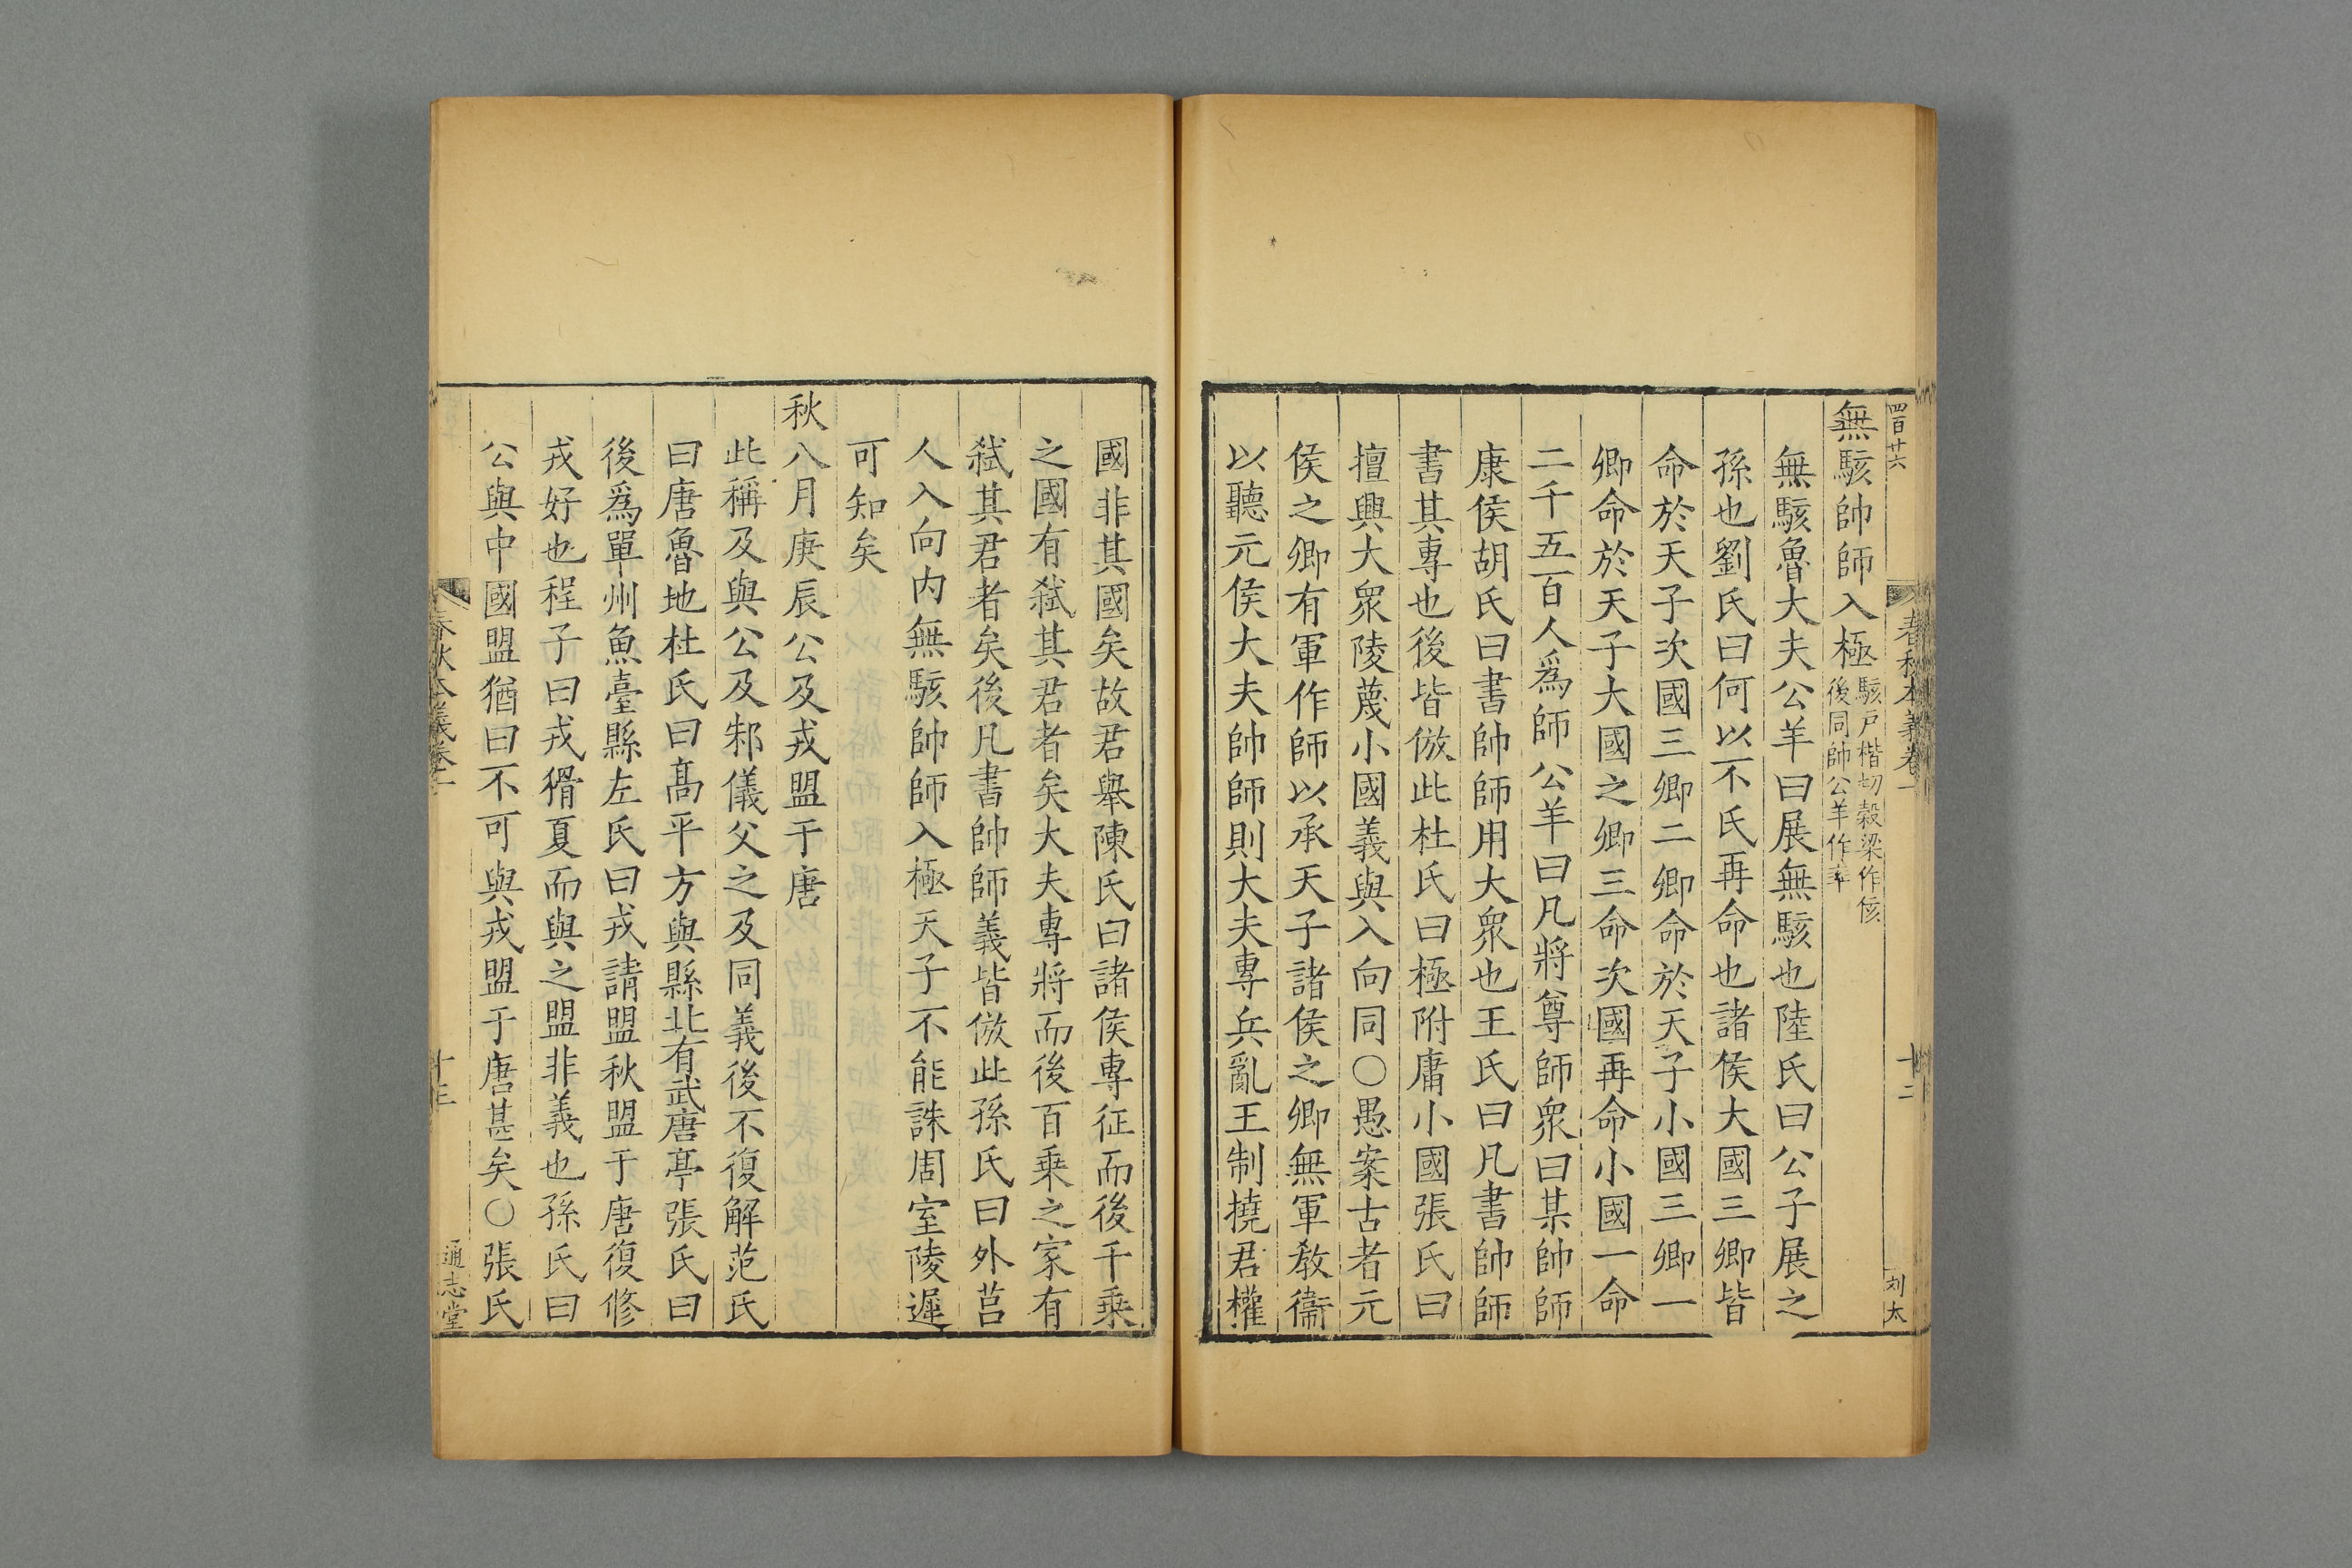 四百廿六
春秋本義卷一
十二
刘太
無駭帥師入極駭戶楷切穀梁作侅
後同帥公羊作率
無駭魯大夫公羊曰展無駭也陸氏曰公子展之
孫也劉氏曰何以不氏再命也諸侯大國三卿皆
命於天子次國三卿二卿命於天子小國三卿一
卿命於天子大國之卿三命次國再命小國一命
二千五百人爲師公羊曰凡將尊師衆曰某帥師
康侯胡氏曰書帥師用大衆也王氏曰凡書帥師
書其專也後皆倣此杜氏曰極附庸小國張氏曰
擅興大衆陵蔑小國義與入向同〇愚案古者元
侯之卿有軍作師以承天子諸侯之卿無軍教衞
以聽元侯大夫帥師則大夫專兵亂王制撓君權
國非其國矣故君舉陳氏曰諸侯專征而後千乗
之國有弑其君者矣大夫專將而後百乗之家有
弑其君者矣後凡書帥師義皆倣此孫氏曰外莒
人入向内無駭帥師入極天子不能誅周室陵遲
可知矣
秋八月庚辰公及戎盟于唐
此稱及與公及邾儀父之及同義後不復解范氏
曰唐魯地杜氏曰髙平方與縣北有武唐亭張氏曰
後爲單州魚臺縣左氏曰戎請盟秋盟于唐復修
戎好也程子曰戎猾夏而與之盟非義也孫氏曰
公與中國盟猶曰不可與戎盟于唐甚矣〇張氏
春秋本義卷一
十三
通志堂